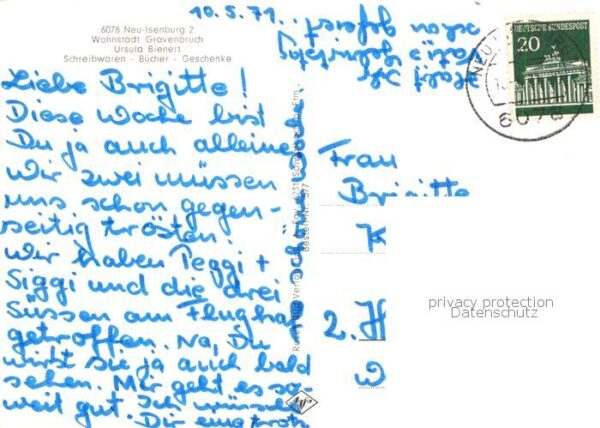 6078 Neu-Isenburg 2
Wohnstadt Gravenbruch
Ursula Bienert
Schreibwaren - Bücher - Geschenke
10.5.71
DEUTSCHE BUNDESPOST
20
6078
Liebe Brigitte!
Diese Woche bist
Du ja auch alleine
Wir zwei müssen
uns schon gegen-
seitig trösten!
Wir haben Peggi +
Siggi und die drei
Süssen am Flughaf
getroffen. Na, Du
wirst sie ja auch bald
sehen. Mir geht es so-
weit gut. Ich wünsche
Dir eine trotz
Frau
Brigitte
K
2. H
W
privacy protection
Datenschutz
Agfa